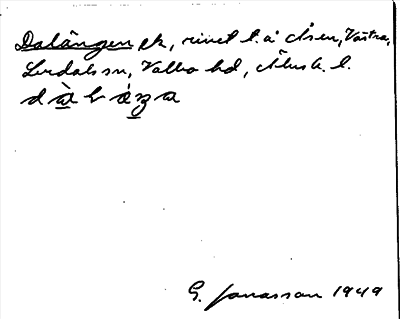 Dalängen ek, rivet t. å Åsen, Västra,
Lerdals sn, Valbo hd, Älvsb. l.
G. Jonasson 1949